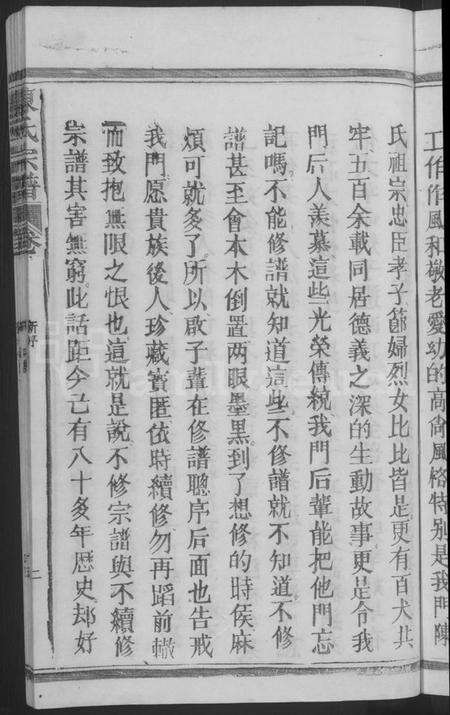 工作作風和敬老愛幼的高尚風格特别是我門陳
氏祖宗忠臣孝子節婦烈女比比皆是更有百犬共
牢五百余載同居德義之深的生動故事更是令我
門后人羡慕這些光荣傳統我門后輩能把他門忘
記嗎不能修譜就知道這些不修譜就不知道不修
譜甚至會本木倒置两眼墨黑到了想修的時侯麻
煩可就多了所以啟子輩在修譜聰序后面也告戒
我門愿貴族後人珍藏寳匣依時續修勿再蹈前轍
而致抱無限之恨也這就是說不修宗譜與不續修
宗譜其害無窮此話距今已有八十多年歷史却好
氏宗譜 卷
新好
二